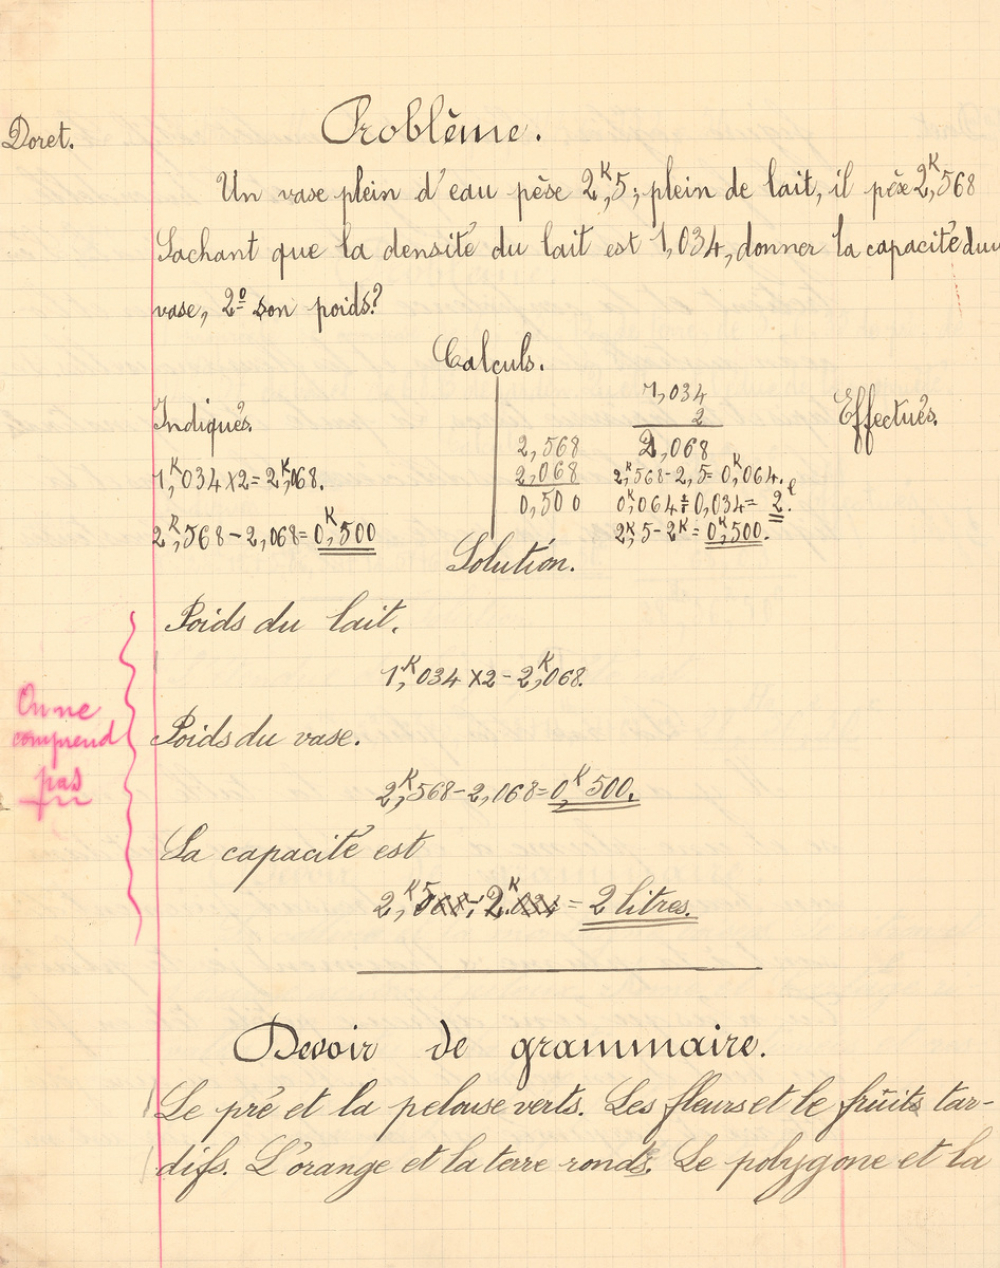 Doret.
Problème.
Un vase plein d'eau pèse 2ᴷ,5; plein de lait, il pèse 2ᴷ,568
Sachant que la densité du lait est 1,034, donner la capacité du
vase, 2º son poids?
Calculs.
Indiqués.
1ᴷ,034 x2 = 2ᴷ,068.
2ᴷ,568 - 2,068 = 0ᴷ,500
2,568
2,068
0,500
1,034
2
2,068
2ᴷ,568 - 2,5 = 0ᴷ,064.
0ᴷ,064 : 0,034 = 2ˡ.
2ᴷ,5 - 2ᴷ = 0ᴷ,500.
Effectués.
Solution.
Poids du lait.
1ᴷ,034 x2 - 2ᴷ,068.
On ne
comprend
pas
Poids du vase.
2ᴷ,568 - 2,068 = 0,ᴷ500.
La capacité est
= 2 litres.
Devoir de grammaire.
Le pré et la pelouse verts. Les fleurs et le fruits tar-
difs. L'orange et la terre ronds. Le polygone et la